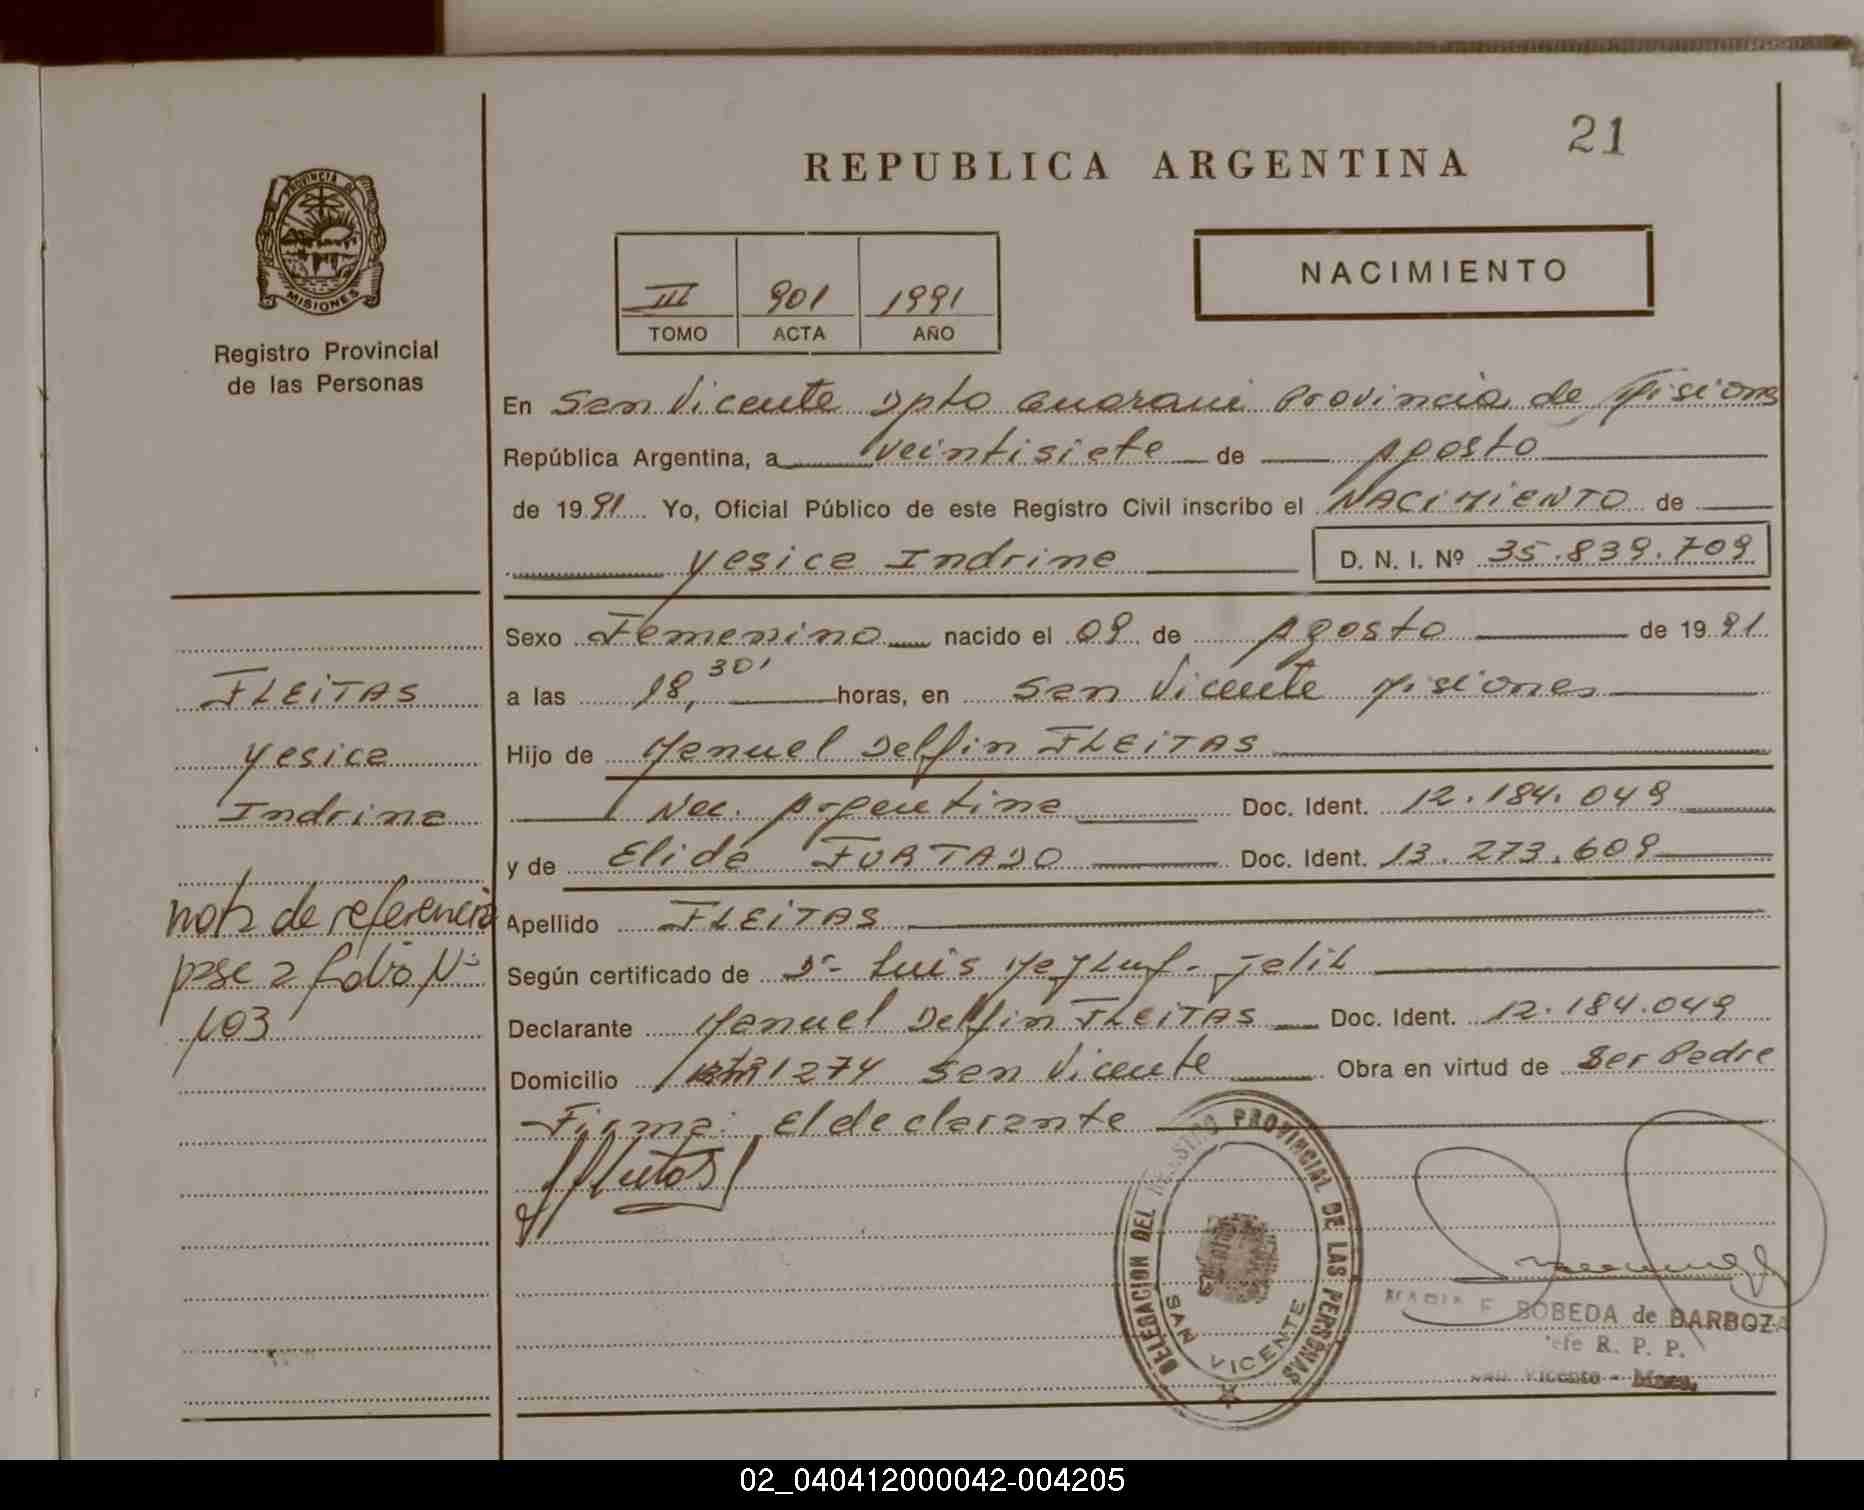 21
REPUBLICA ARGENTINA
PROVINCIA DE
MISIONES
Registro Provincial
de las Personas
III 901 1991
TOMO ACTA AÑO
NACIMIENTO
En San Vicente Dpto Guarani Provincia de Misiones
República Argentina, a veintisiete de Agosto
de 1991 Yo, Oficial Público de este Registro Civil inscribo el NACIMIENTO de
Yesica Indrina D. N. I. Nº 35.839.709
Sexo Femenino nacido el 09 de Agosto de 1991
a las 18,30' horas, en San Vicente Misiones
Hijo de Manuel Delfin FLEITAS
Nac. Argentina Doc. Ident. 12.184.049
y de Elida FURTADO Doc. Ident. 13.273.609
Apellido FLEITAS
Según certificado de Dr Luis
Declarante Manuel Delfin FLEITAS Doc. Ident. 12.184.049
Domicilio 1274 San Vicente Obra en virtud de Ser Padre
Firma: El declarante
FLEITAS
Yesica
Indrina
nota de referencia
pase a folio Nº
103
DELEGACION DEL REGISTRO PROVINCIAL DE LAS PERSONAS
SAN VICENTE
MARIA E. BOBEDA de BARBOZA
Jefe R. P. P.
San Vicente - Mnes.
02_040412000042-004205